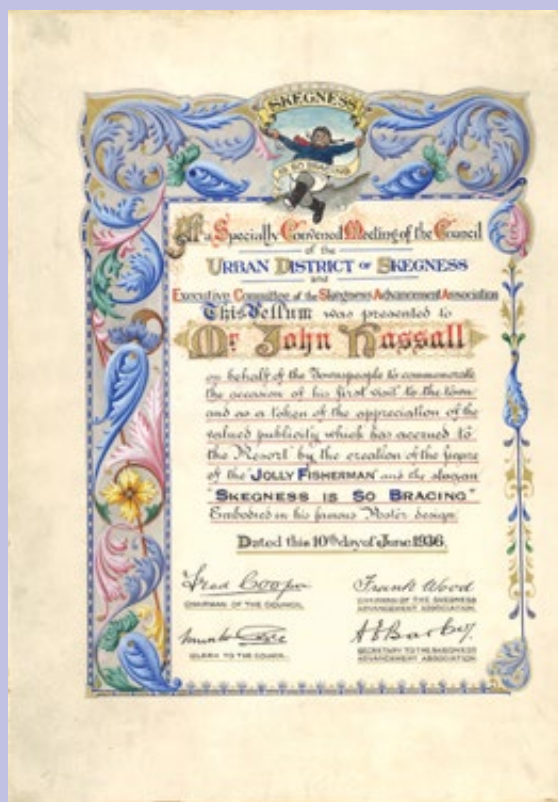 SKEGNESS
IS SO BRACING
At a Specially Convened Meeting of the Council
of the
URBAN DISTRICT OF SKEGNESS
and
Executive Committee of the Skegness Advancement Association
This Vellum was presented to
Mr John Hassall
on behalf of the Townspeople to commemorate
the occasion of his first visit to the town
and as a token of the appreciation of the
valued publicity which has accrued to
the Resort by the creation of the figure
of the "JOLLY FISHERMAN" and the slogan
"SKEGNESS IS SO BRACING"
Embodied in his famous Poster design.
Dated this 10th day of June 1936.
Fred Cooper Frank Wood
CHAIRMAN OF THE COUNCIL CHAIRMAN OF THE SKEGNESS
ADVANCEMENT ASSOCIATION.
CLERK TO THE COUNCIL. SECRETARY TO THE SKEGNESS
ADVANCEMENT ASSOCIATION.